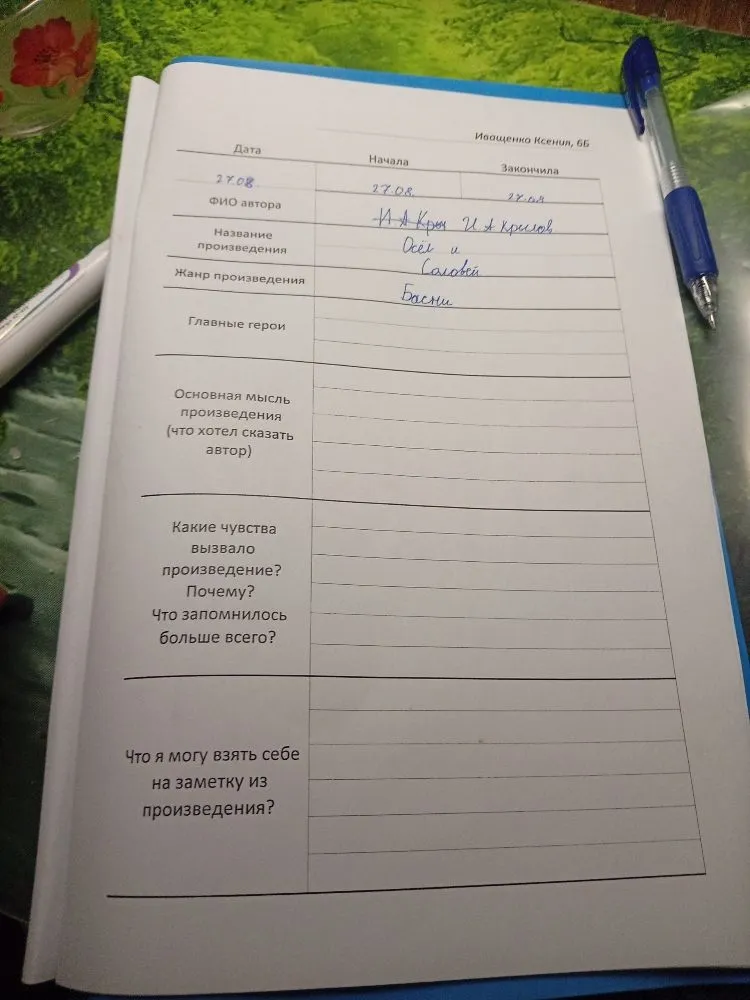 Иващенко Ксения, 6Б
Дата Начала Закончила
27.08. 27.08. 27.08
ФИО автора И А Кры И А Крылов
Название произведения Осёл и
Соловей
Жанр произведения Басни
Главные герои
Основная мысль
произведения
(что хотел сказать
автор)
Какие чувства
вызвало
произведение?
Почему?
Что запомнилось
больше всего?
Что я могу взять себе
на заметку из
произведения?